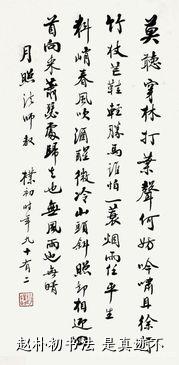 莫聽穿林打葉聲何妨吟嘯且徐行
竹杖芒鞋輕勝馬誰怕一蓑烟雨任平生
料峭春風吹酒醒微冷山頭斜照却相迎回
首向來蕭瑟處歸去也無風雨也無晴
月照法師教
樸初時年九十有二
赵朴初书法 是真迹不